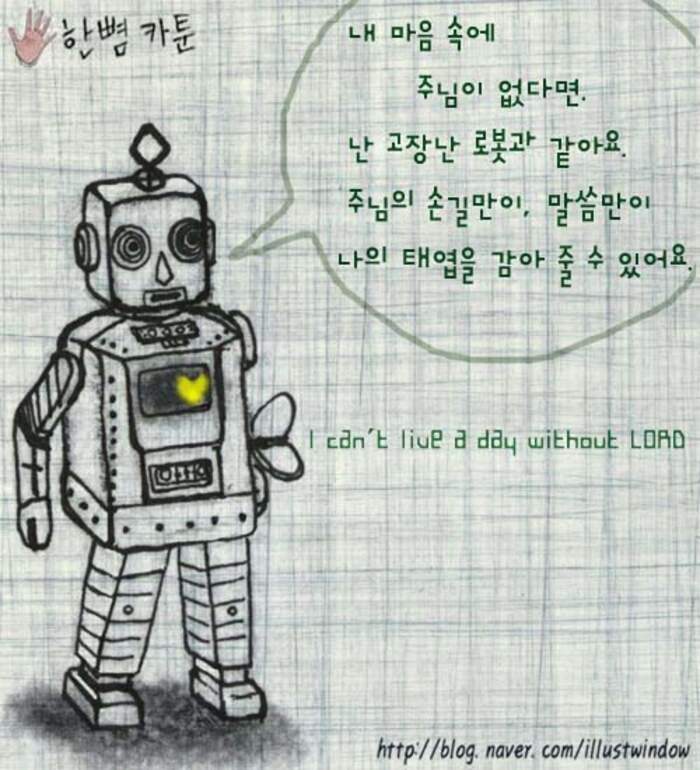 한뼘 카툰
내 마음 속에
주님이 없다면.
난 고장난 로봇과 같아요.
주님의 손길만이, 말씀만이
나의 태엽을 감아 줄 수 있어요.
I can't live a day without LORD
http://blog.naver.com/illustwindow